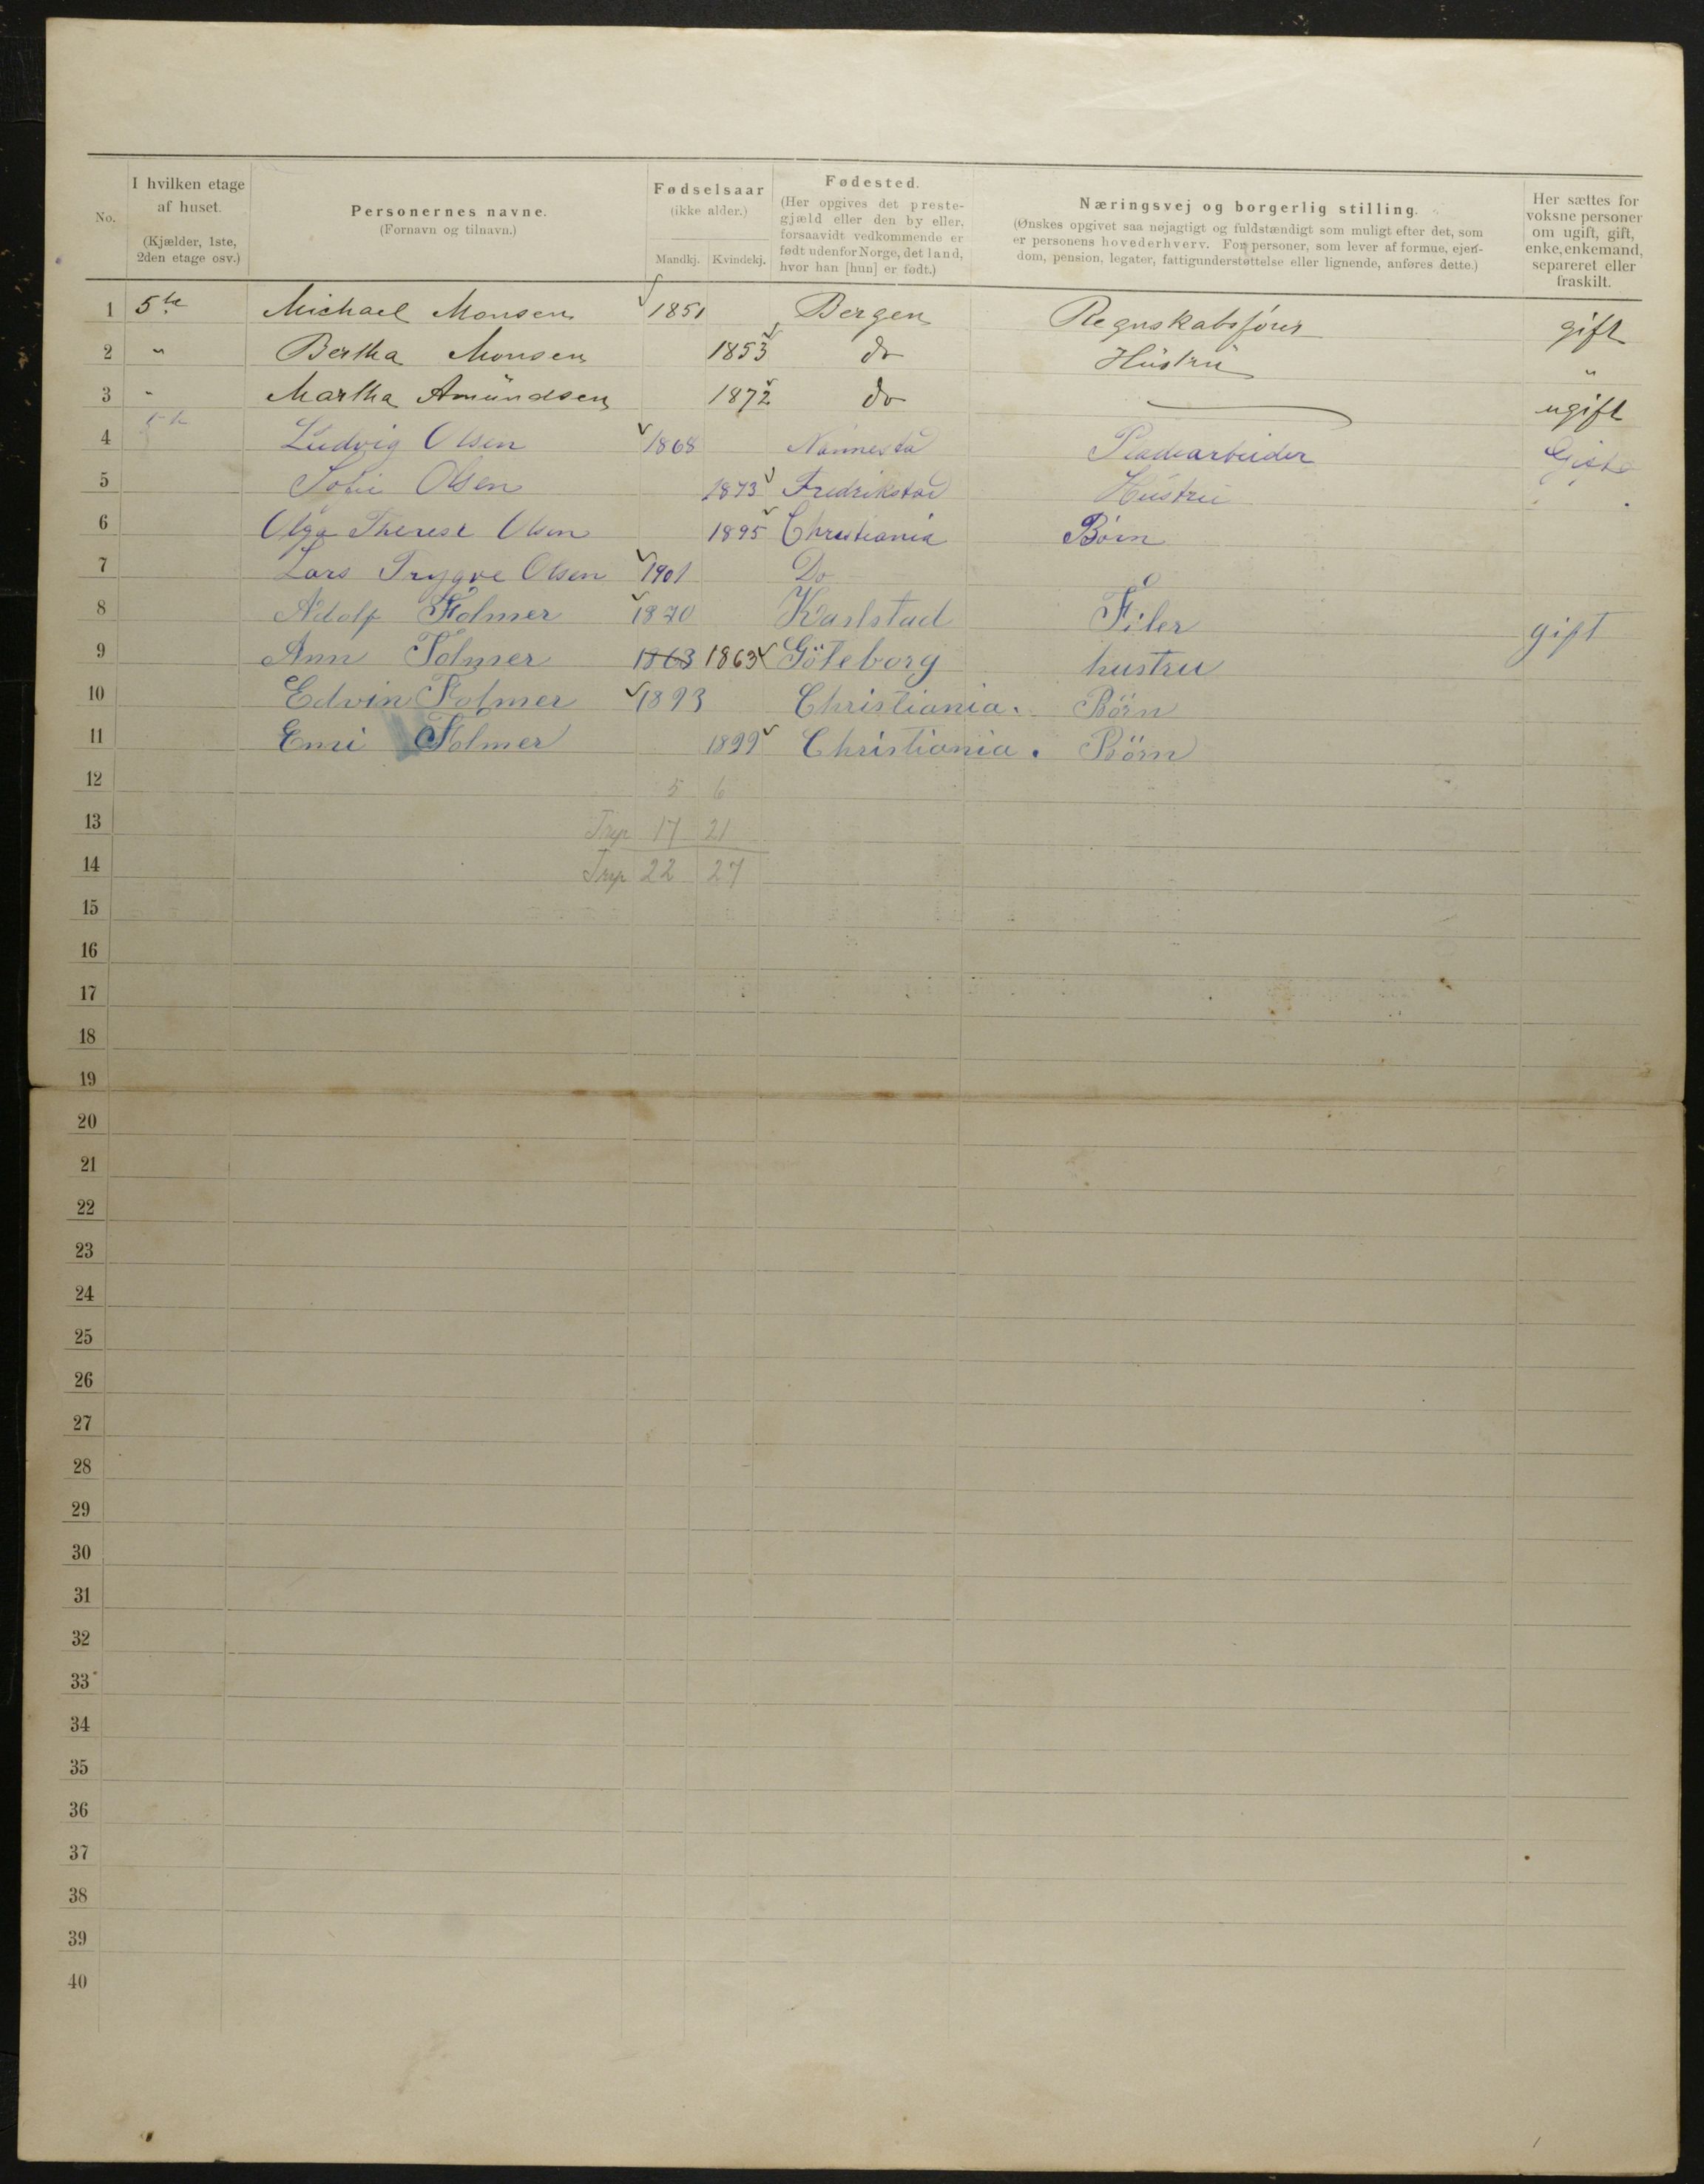 No.
I hvilken etage af huset. (Kjælder, 1ste, 2den etage osv.)
Personernes navne. (Fornavn og tilnavn.)
Fødselsaar (ikke alder.) Mandkj. Kvindekj.
Fødested. (Her opgives det prestegjæld eller den by eller, forsaavidt vedkommende er født udenfor Norge, det land, hvor han [hun] er født.)
Næringsvej og borgerlig stilling. (Ønskes opgivet saa nøjagtigt og fuldstændigt som muligt efter det, som er personens hovederhverv. For personer, som lever af formue, ejendom, pension, legater, fattigunderstøttelse eller lignende, anføres dette.)
Her sættes for voksne personer om ugift, gift, enke, enkemand, separeret eller fraskilt.
1 5te Michael Monsen 1851 Bergen Regnskabsfører gift
2 " Bertha Monsen 1853 do Hustru "
3 " Martha Amundsen 1872 do ugift
4 Ludvig Olsen 1868 Nannestad Gift
5 Sofie Olsen 1873 Fredrikstad Hustru
6 Olga Therese Olsen 1895 Christiania Børn
7 Lars Trygve Olsen 1901 Do
8 Adolf Folmer 1870 Karlstad Filer gift
9 Ann Folmer 1863 1863 Göteborg hustru
10 Edvin Folmer 1893 Christiania. Börn
11 Emi Folmer 1899 Christiania. Börn
12 5 6
13 17 21
14 22 27
15
16
17
18
19
20
21
22
23
24
25
26
27
28
29
30
31
32
33
34
35
36
37
38
39
40